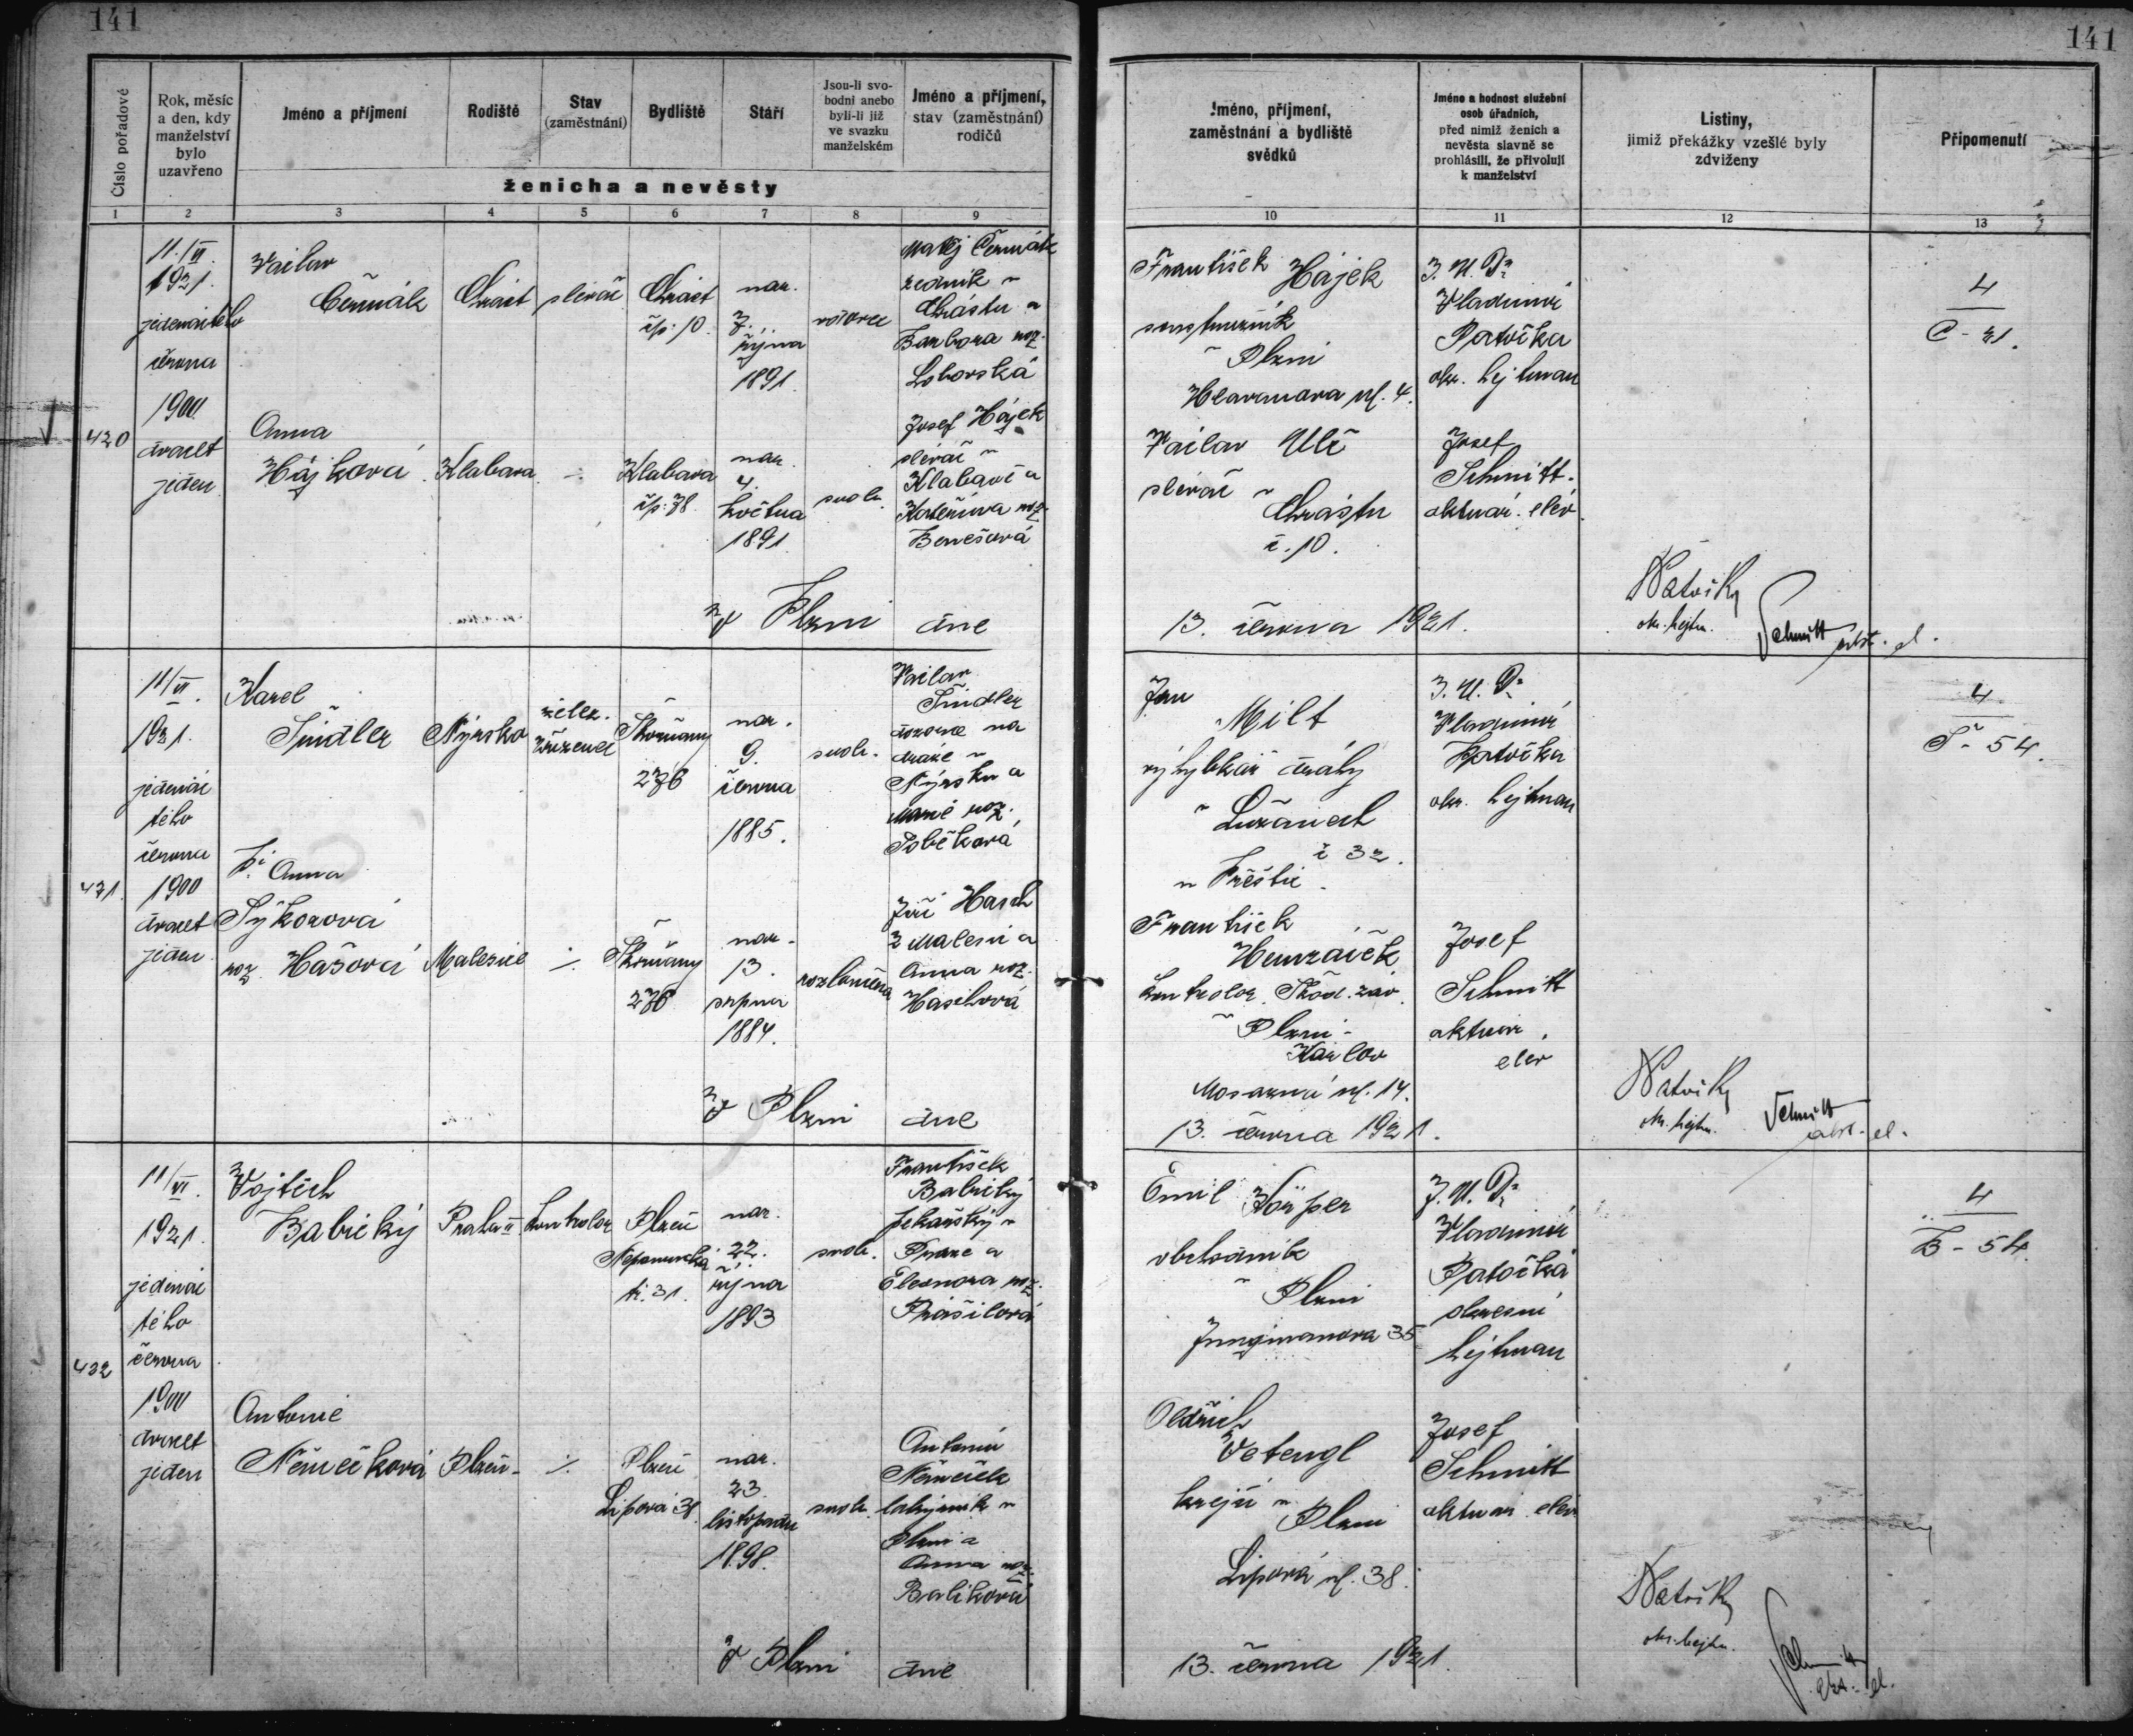 141
141
Číslo pořadové
Rok, měsíc a den, kdy manželství bylo uzavřeno
Jméno a příjmení
Rodiště
Stav (zaměstnání)
Bydliště
Stáří
Jsou-li svobodni anebo byli-li již ve svazku manželském
Jméno a příjmení, stav (zaměstnání) rodičů
ženicha a nevěsty
Jméno, příjmení, zaměstnání a bydliště svědků
Jméno a hodnost služební osob úřadních, před nimiž ženich a nevěsta slavně se prohlásili, že přivolují k manželství
Listiny, jimiž překážky vzešlé byly zdviženy
Připomenutí
1 2 3 4 5 6 7 8 9 10 11 12 13
420
11./VI.
1921.
jedenáctého
června
1900
dvacet
jeden
Václav
Čermák
Chrást
slévač
Chrást
čp. 10.
nar.
7.
října
1891.
vdovec
Matěj Čermák
zedník v
Chrástu a
Barbora roz.
Anna
Hájková
Klabava
Klabava
čp. 78
nar.
4.
května
1891.
svob.
Josef Hájek
slévač v
Klabavě a
Kateřina roz.
Benešová
František Hájek
soustružník
v Plzni
ul. 4.
Václav Ulč
slévač v
Chrástu
č. 10.
J. U. Dr
Vladimír
Patočka
okr. hejtman
Josef
Schmitt
aktuár. elév.
4
C - 21.
V Plzni dne
13. června 1921.
okr. hejtm.
Schmitt
431.
11/VI.
1921.
jedenác
tého
června
1900
dvacet
jeden
Karel
Šindler
Nýrsko
želez.
zřízenec
Skvrňany
276
nar.
9.
června
1885.
svob.
Václav
Šindler
dozorce na
dráze v
Nýrsku a
Marie roz.
Anna
Sýkorová
roz. Hašová
Malesice
Skvrňany
276
nar.
13.
srpna
1884.
rozloučena
Jiří Hasch
z Malesic a
Anna roz.
Jan
Milt
výhybkář dráhy
v Lužanech
č 32.
u Přeštic.
František
kontrolor Škod. záv.
v Plzni -
Karlov
ul. 14.
J. U. Dr
Vladimír
Patočka
okr. hejtman
Josef
Schmitt
aktuár.
elév
4
Š - 54.
V Plzni dne
13. června 1921.
okr. hejtm.
Schmitt
432
11/VI.
1921.
jedenác
tého
června
1900
dvacet
jeden
Vojtěch
Babický
Praha II
kontrolor
Plzeň
Nepomucká
tř. 31.
nar.
22.
října
1893
svob.
František
Babický
v
Praze a
Eleonora roz.
Prášilová
Antonie
Němečková
Plzeň
Plzeň
Lipová 38.
nar.
23.
listopadu
1898.
svob.
Antonín
Němeček
v
Plzni a
Anna roz.
Balíková
Emil Körper
obchodník
v Plzni
Jungmanova 35
Oldřich
Vetengl
krejčí v
Plzni
Lipová ul. 38.
J. U. Dr
Vladimír
Patočka
okresní
hejtman
Josef
Schmitt
aktuár. elév
4
B - 54.
V Plzni dne
13. června 1921.
okr. hejtm.